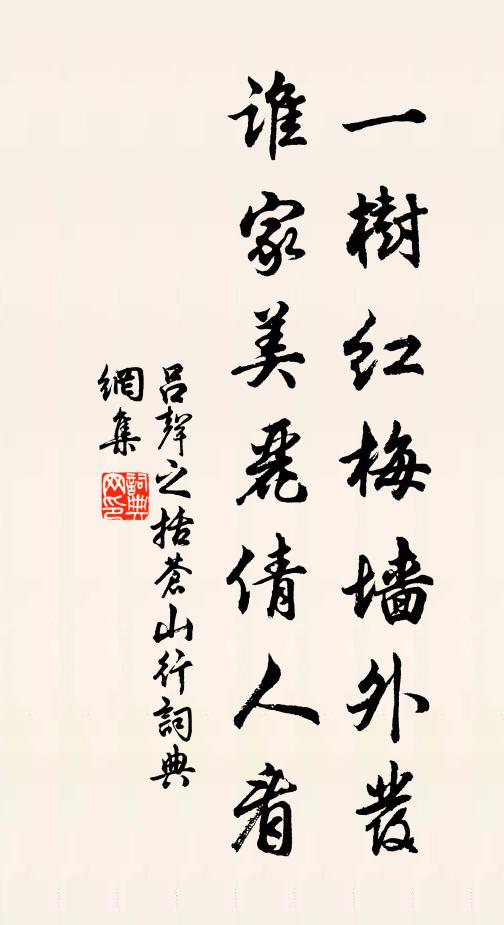 一樹红梅墙外發
誰家美麗倩人看
吕聲之括蒼山行詞典
網集
詞典网印